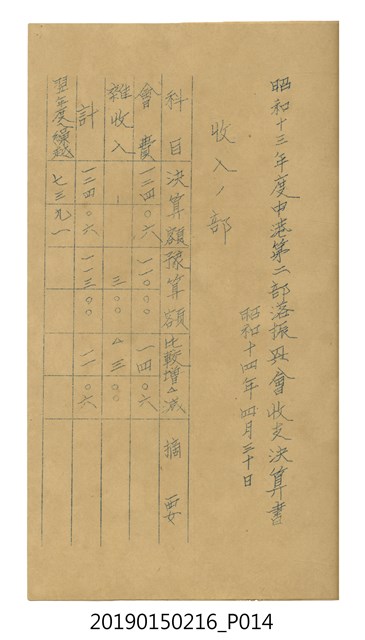 昭和十三年度中港第二部落振興會收支決算書
昭和十四年四月三十日
收入ノ部
科目 決算額 豫算額 比較增△減 摘要
會費 一二四〇六 一一〇〇〇 一四〇六
雜收入 三〇〇 △三〇〇
計 一二四〇六 一一三〇〇 一一〇六
翌年度繰越 七三九一
20190150216_P014